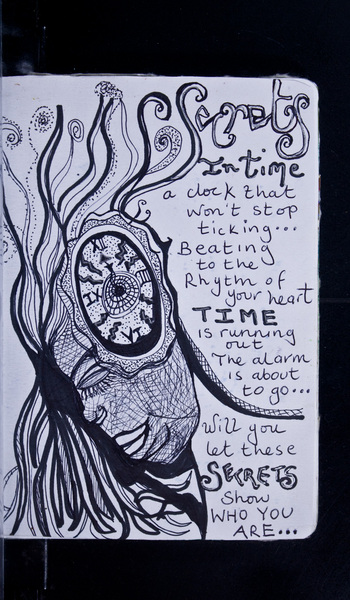 Secrets
In time
a clock that
won't stop
ticking...
Beating
to the
Rhytm of
your heart
TIME
is running
out
The alarm
is about
to go...
Will you
let these
SECRETS
Show
WHO YOU
ARE...